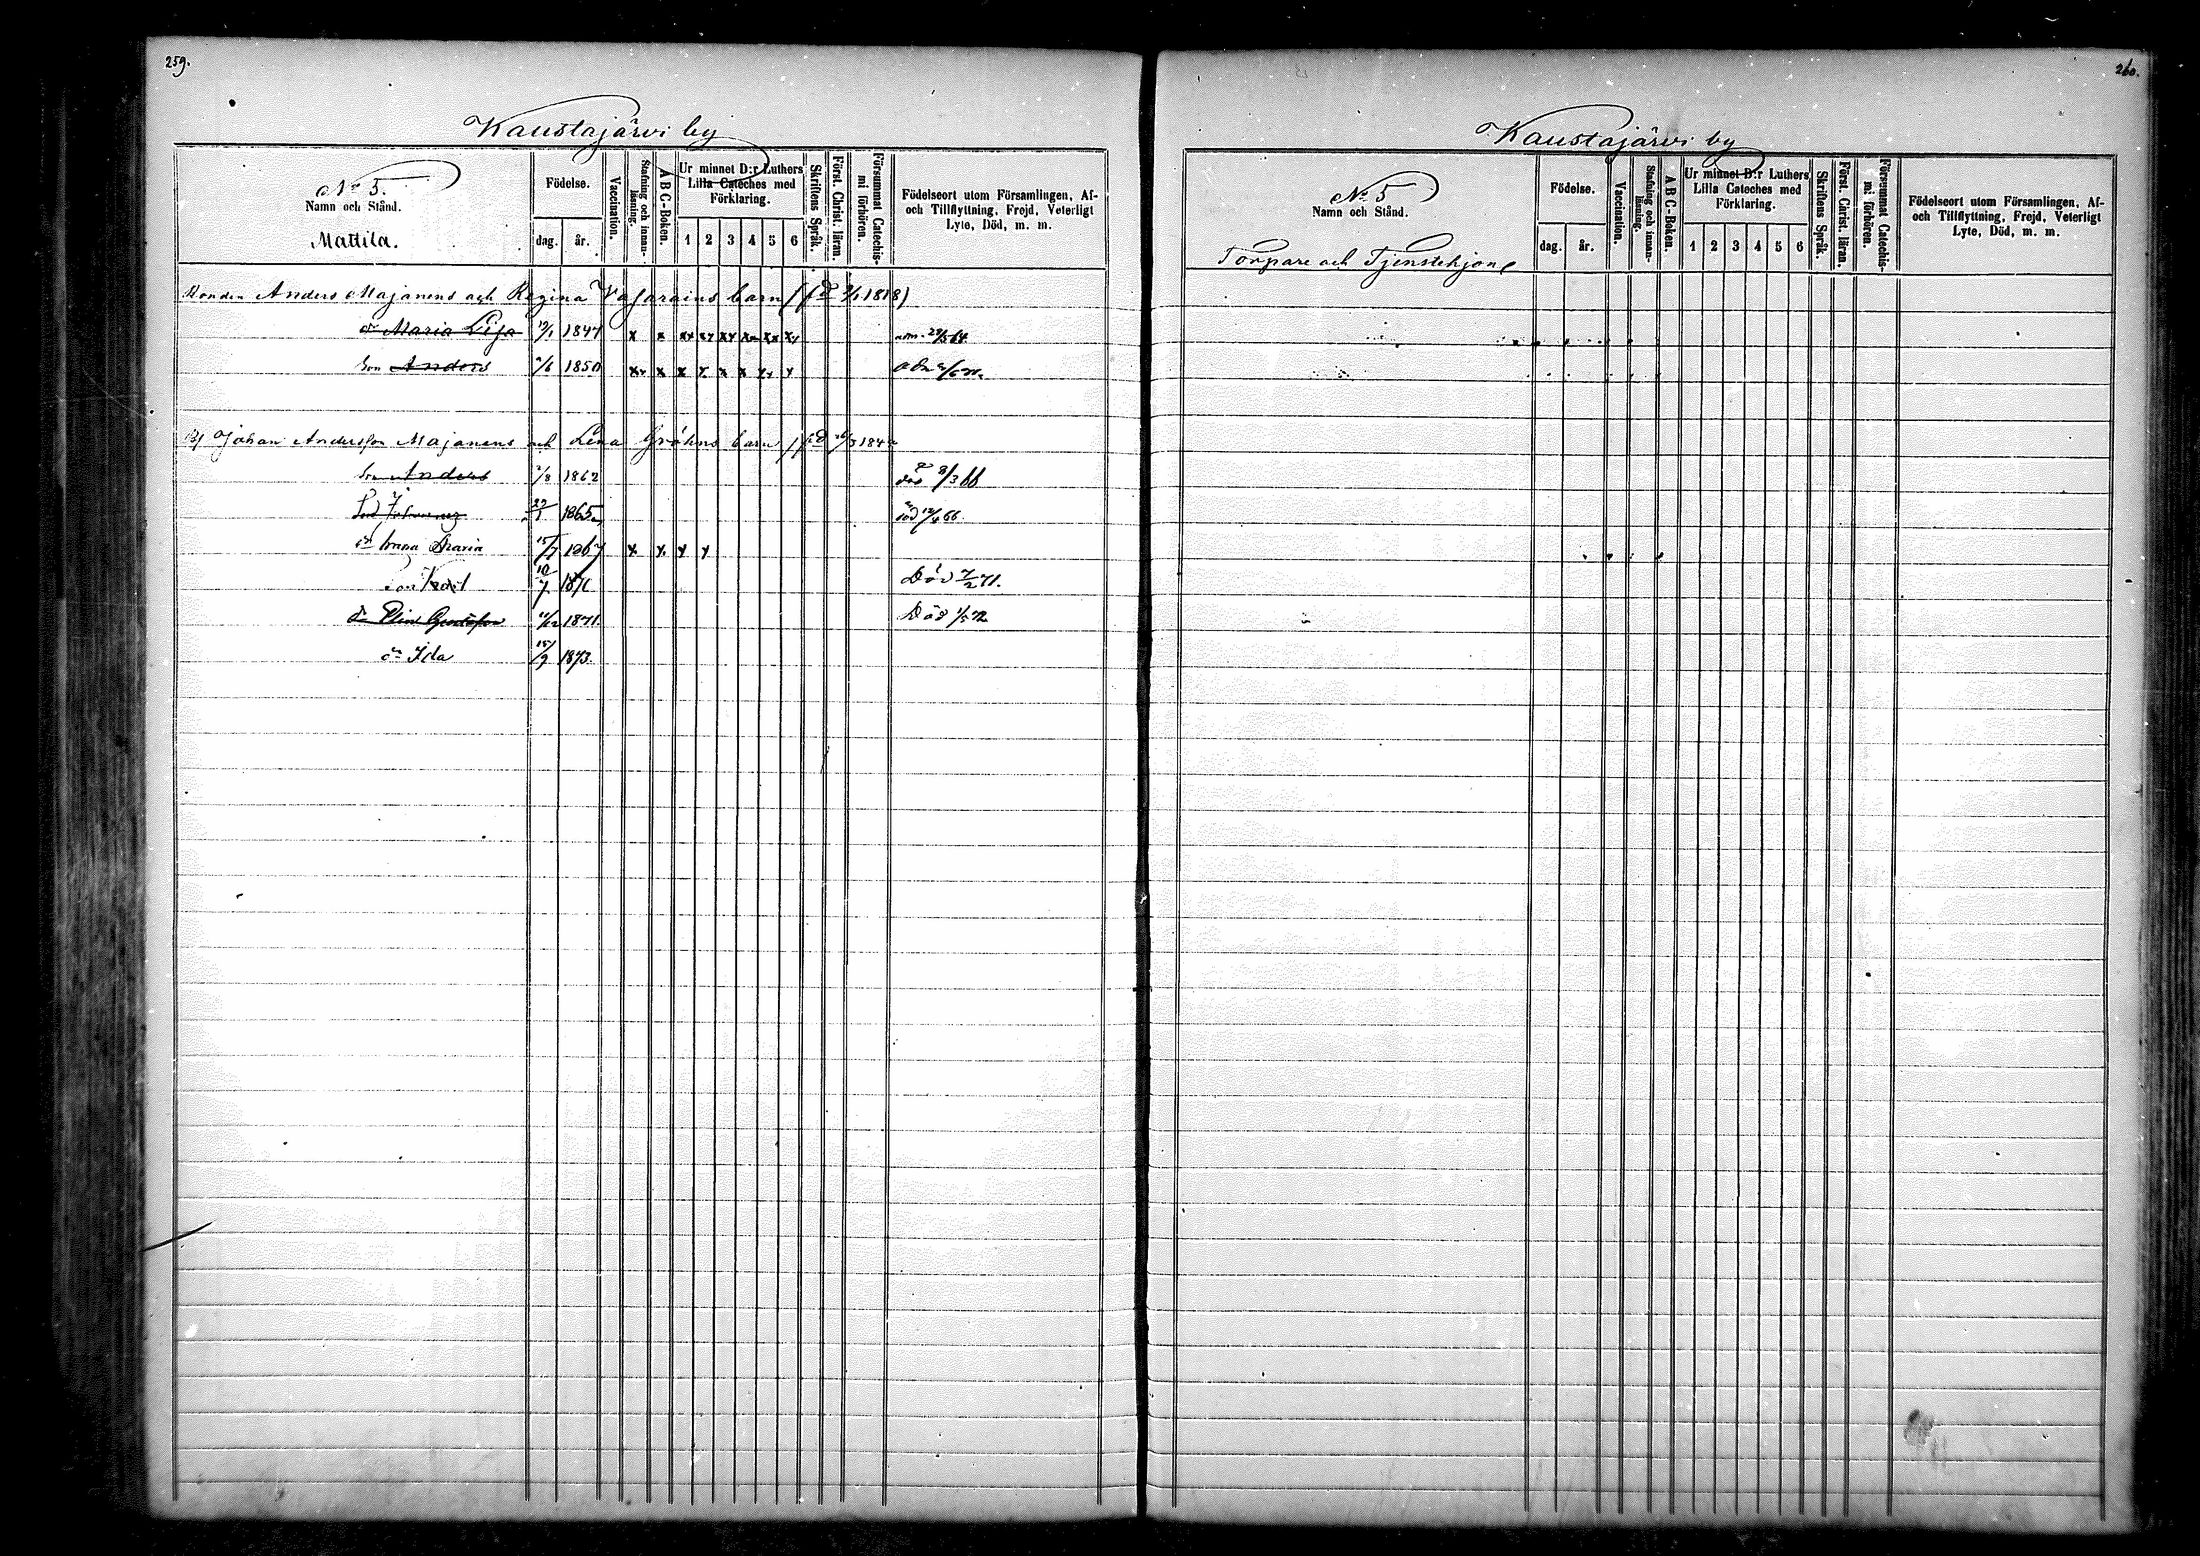 259.
Kaustajärvi by
No 5.
Namn och Stånd.
Mattila.
Födelse.
dag. år.
Vaccination.
Stafning och innanläsning.
A B C-Boken.
Ur minnet D:r Luthers Lilla Cateches med Förklaring.
1 2 3 4 5 6
Skriftens Språk.
Först. Christ. läran.
Försummat Catechismi förhören.
Födelseort utom Församlingen, Af- och Tillflyttning, Frejd, Veterligt Lyte, Död, m. m.
Anders Majanens och Regina barn 1818)
dr Maria Lisa 1847 x x xx xx xx xx xx xx
Son Anders 1850 xx x x x x x xx x
Johan Andersson Majanens och Lena Gröhns barn
Son Anders 2/8 1862 död 8/3 66
Son 27/1 1865 död 12/4 66.
dr Maria 15/7 1867 x x x x
Son Karl 10/7 Död 7/2 71.
dr 1871 Död 1/5 72
dr Ida 15/9 1873.
260.
Kaustajärvi by
No 5
Namn och Stånd.
Torpare och Tjenstehjon
Födelse.
dag. år.
Vaccination.
Stafning och innanläsning.
A B C-Boken.
Ur minnet D:r Luthers Lilla Cateches med Förklaring.
1 2 3 4 5 6
Skriftens Språk.
Först. Christ. läran.
Försummat Catechismi förhören.
Födelseort utom Församlingen, Af- och Tillflyttning, Frejd, Veterligt Lyte, Död, m. m.